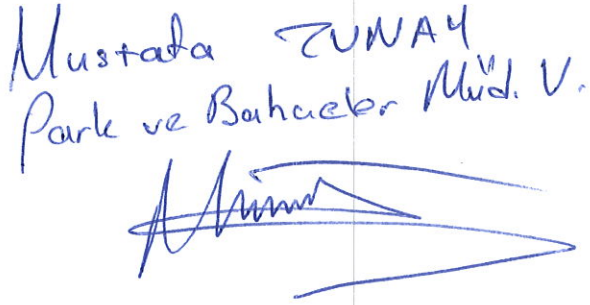 Mustafa TUNAY
Park ve Bahçeler Müd. V.